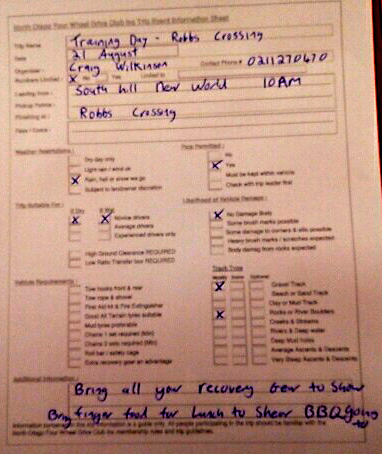 North Otago Four Wheel Drive Club Inc Trip Event Information Sheet
Trip Name Training Day - Robbs Crossing
Date 21 August
Organiser Craig Wilkinson Contact Phone # 0211270470
Numbers Limited X No Yes Limited to
Leaving from South hill New World 10AM
Pickup Points
Finishing at Robbs Crossing
Fees / Costs
Weather Restrictions
Dry day only
Light rain / wind ok
X Rain, hail or snow we go
Subject to landowner discretion
Pets Permitted
No
X Yes
Must be kept within vehicle
Check with trip leader first
Trip Suitable For
If Dry If Wet
X X Novice drivers
Average drivers
Experienced drivers only
High Ground Clearance REQUIRED
Low Ratio Transfer box REQUIRED
Likelihood of Vehicle Damage
X No Damage likely
Some brush marks possible
Some damage to corners & sills possible
Heavy brush marks / scratches expected
Body damage from rocks expected
Vehicle Requirements
Tow hooks front & rear
Tow rope & shovel
First Aid kit & Fire Extinguisher
Good All Terrain tyres suitable
Mud tyres preferable
Chains 1 set required (Min)
Chains 2 sets required (Min)
Roll bar / safety cage
Extra recovery gear an advantage
Track Type
Mostly Some Optional
X Gravel Track
Beach or Sand Track
Clay or Mud Track
X Rocks or River Boulders
Creeks & Streams
Rivers & Deep water
Deep Mud Holes
Average Ascents & Descents
Very Steep Ascents & Descents
Additional Information
Bring all your recovery Gear to Show
Bring finger food for lunch to Shear BBQ going
Information contained on this trip information is a guide only. All people participating in the trip should be familiar with the
North Otago Four Wheel Drive Club Inc membership rules and trip guidelines.